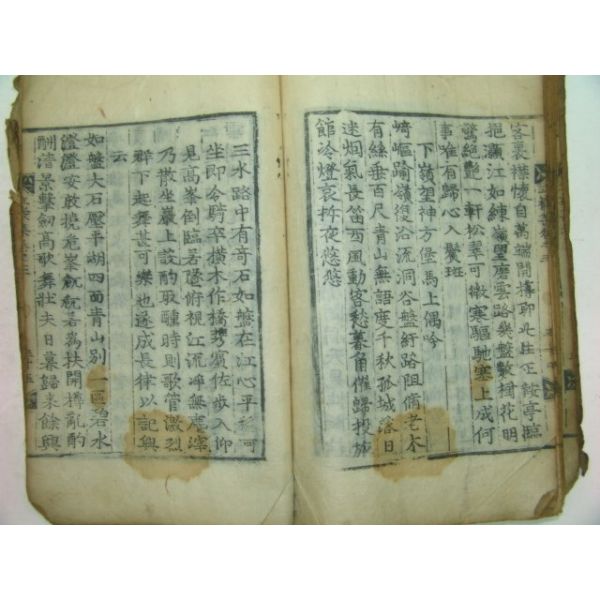 客裏襟懷自萬端開樽聊此上鞍亭臨
挹灝江如練 望磨雲路幾盤數樹花明
驚絶艶一軒松翠可 寒驅馳塞上成何
事唯有歸心入鬢斑
下嶺望神方堡馬上偶吟
崎嶇踰嶺復沿流洞谷盤紆路阻脩老木
有絲垂百尺青山無語度千秋孤城落日
迷烟氣長笛西風動客愁暮角催歸投
館冷燈哀 夜悠悠
三水路中有奇石如盤在江心平 可
坐即令騎卒作橫木橋 賓佐 入仰
見高峯倒臨若墜俯視江流 無 滓
乃散坐巖上設酌 時則歌管激烈
群下起舞甚可樂也遂成長律以記興
云
如盤大石壓平湖四面青山別一區碧水
澄澄安敢撓危峯 若爲扶開樽亂酌
酣 景擊劍高歌舞壯夫日暮歸來餘興